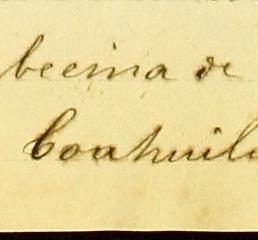 becina de
Coahuil